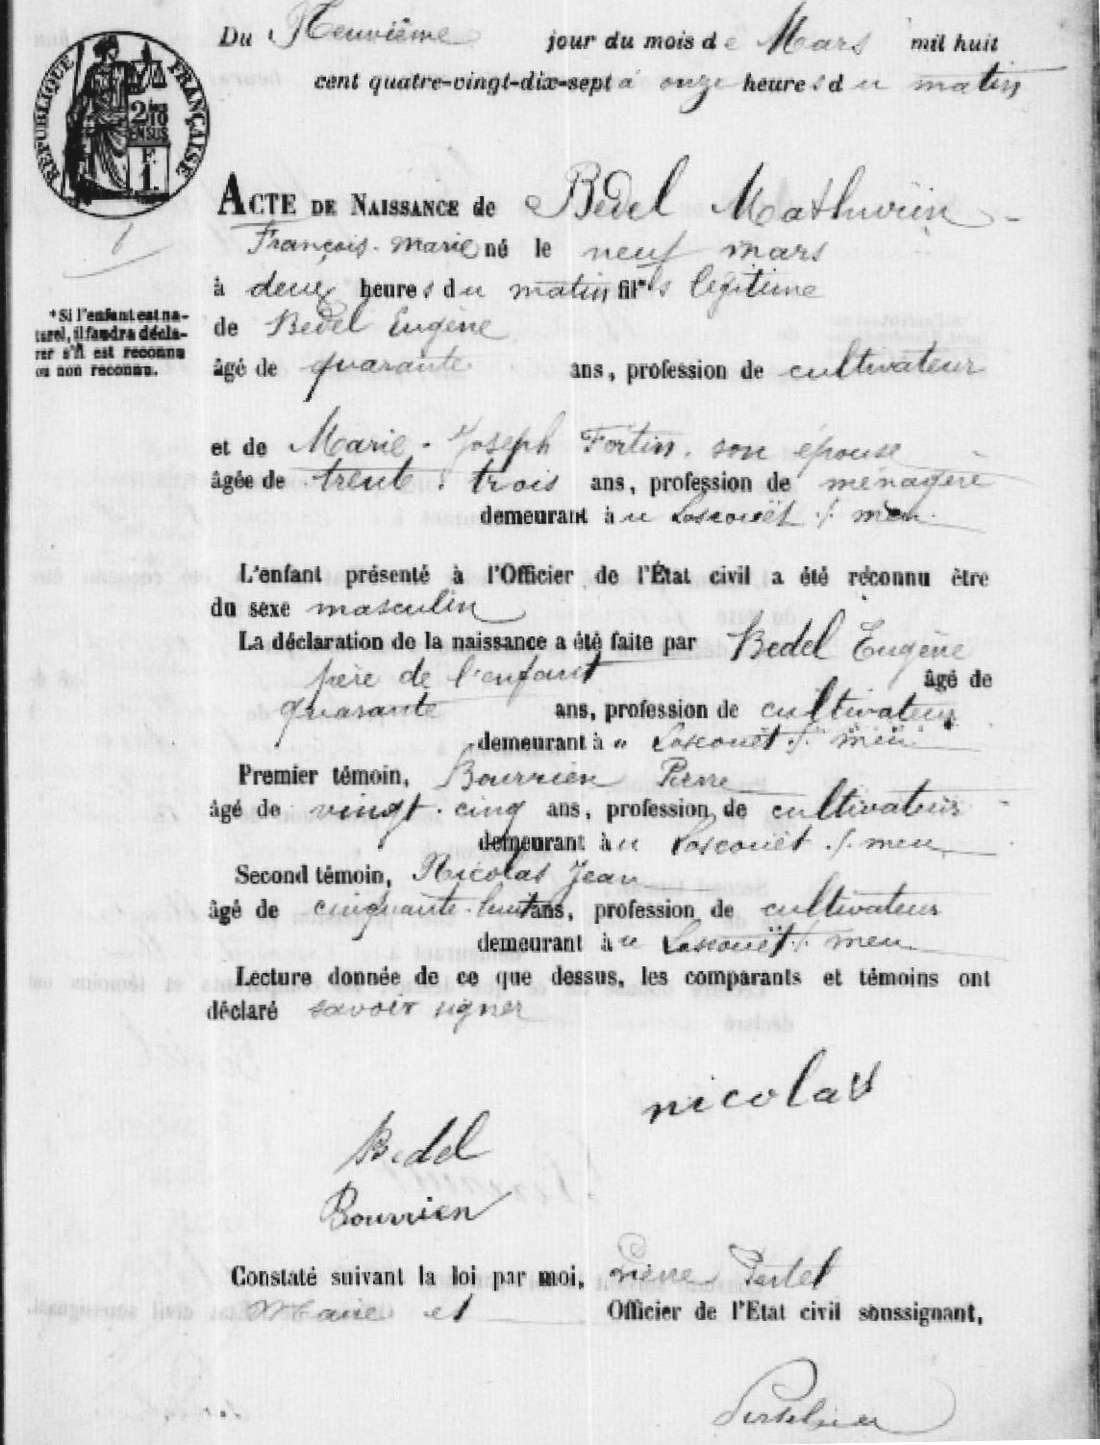 Du Neuvième jour du mois de Mars mil huit
cent quatre-vingt-dix-sept à onze heures du matin
REPUBLIQUE FRANÇAISE
2 10
EN SUS
F.
1.
ACTE DE NAISSANCE de Bedel Mathurin
François-Marie né le neuf mars
à deux heures du matin fils légitime
*Si l'enfant est na-
turel, il faudra décla-
rer s'il est reconnu
ou non reconnu.
de Bedel Eugène
âgé de quarante ans, profession de cultivateur
et de Marie-Joseph Fortin, son épouse
âgée de trente-trois ans, profession de ménagère
demeurant à u Loscouët s/ meu
L'enfant présenté à l'Officier de l'État civil a été reconnu être
du sexe masculin
La déclaration de la naissance a été faite par Bedel Eugène
père de l'enfant âgé de
quarante ans, profession de cultivateur
demeurant à u Loscouët s/ meu
Premier témoin, Bourrien Pierre
âgé de vingt-cinq ans, profession de cultivateur
demeurant à u Loscouët s/ meu
Second témoin, Nicolas Jean
âgé de cinquante-huit ans, profession de cultivateur
demeurant à u Loscouët s/ meu
Lecture donnée de ce que dessus, les comparants et témoins ont
déclaré savoir signer
nicolas
Bedel
Bourrien
Constaté suivant la loi par moi, Pierre
Maire et Officier de l'Etat civil soussignant,